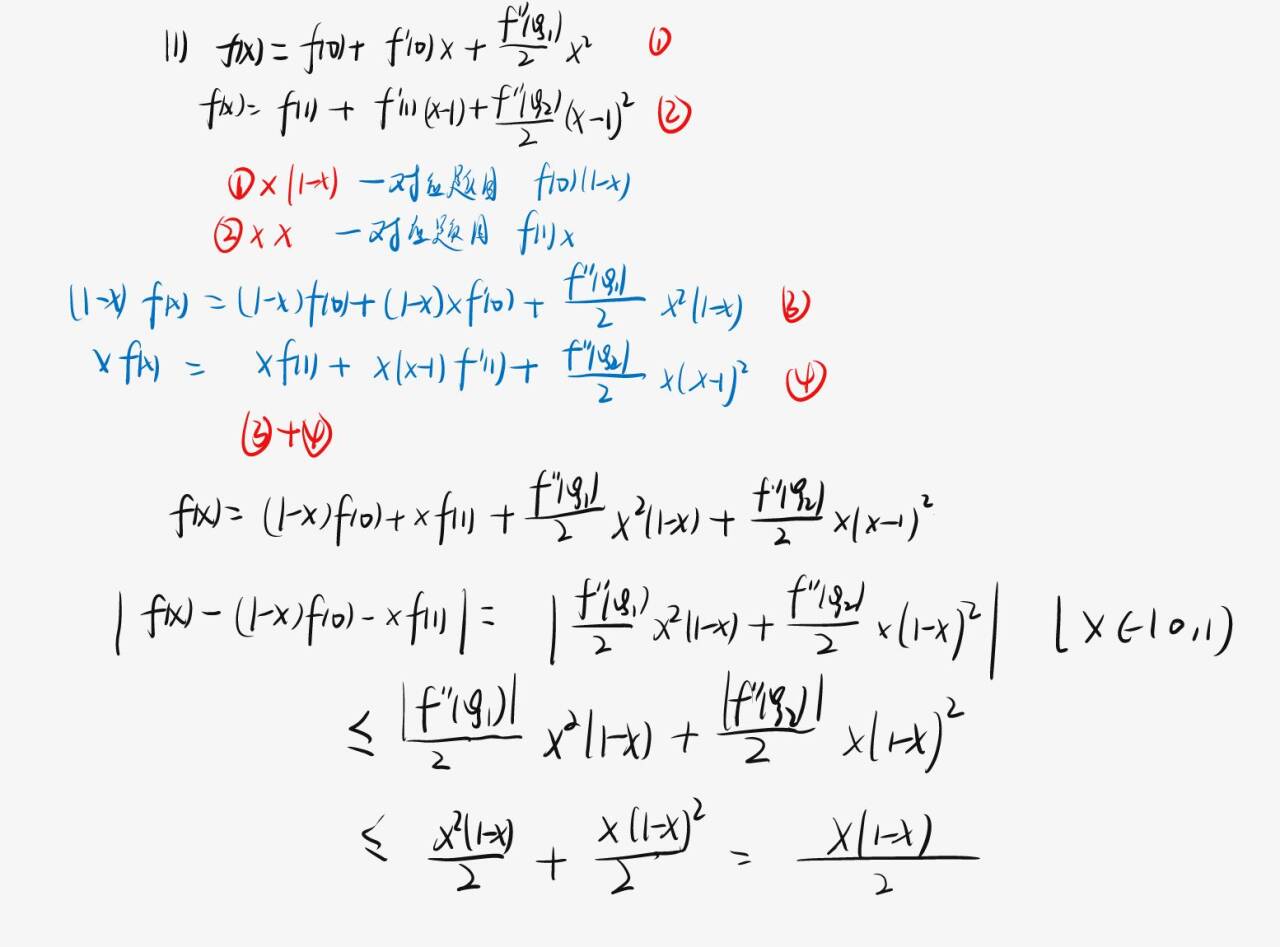 (1) f(x) = f(0) + f'(0)x + f''(ξ₁)/2 x² ①
f(x) = f(1) + f'(1)(x-1) + f''(ξ₂)/2 (x-1)² ②
①×(1-x) — 对应题目 f(0)(1-x)
②×x — 对应题目 f(1)x
(1-x)f(x) = (1-x)f(0) + (1-x)xf'(0) + f''(ξ₁)/2 x²(1-x) ③
xf(x) = xf(1) + x(x-1)f'(1) + f''(ξ₂)/2 x(x-1)² ④
③+④
f(x) = (1-x)f(0) + xf(1) + f''(ξ₁)/2 x²(1-x) + f''(ξ₂)/2 x(x-1)²
|f(x) - (1-x)f(0) - xf(1)| = |f''(ξ₁)/2 x²(1-x) + f''(ξ₂)/2 x(1-x)²| (x∈(0,1)
≤ |f''(ξ₁)|/2 x²(1-x) + |f''(ξ₂)|/2 x(1-x)²
≤ x²(1-x)/2 + x(1-x)²/2 = x(1-x)/2